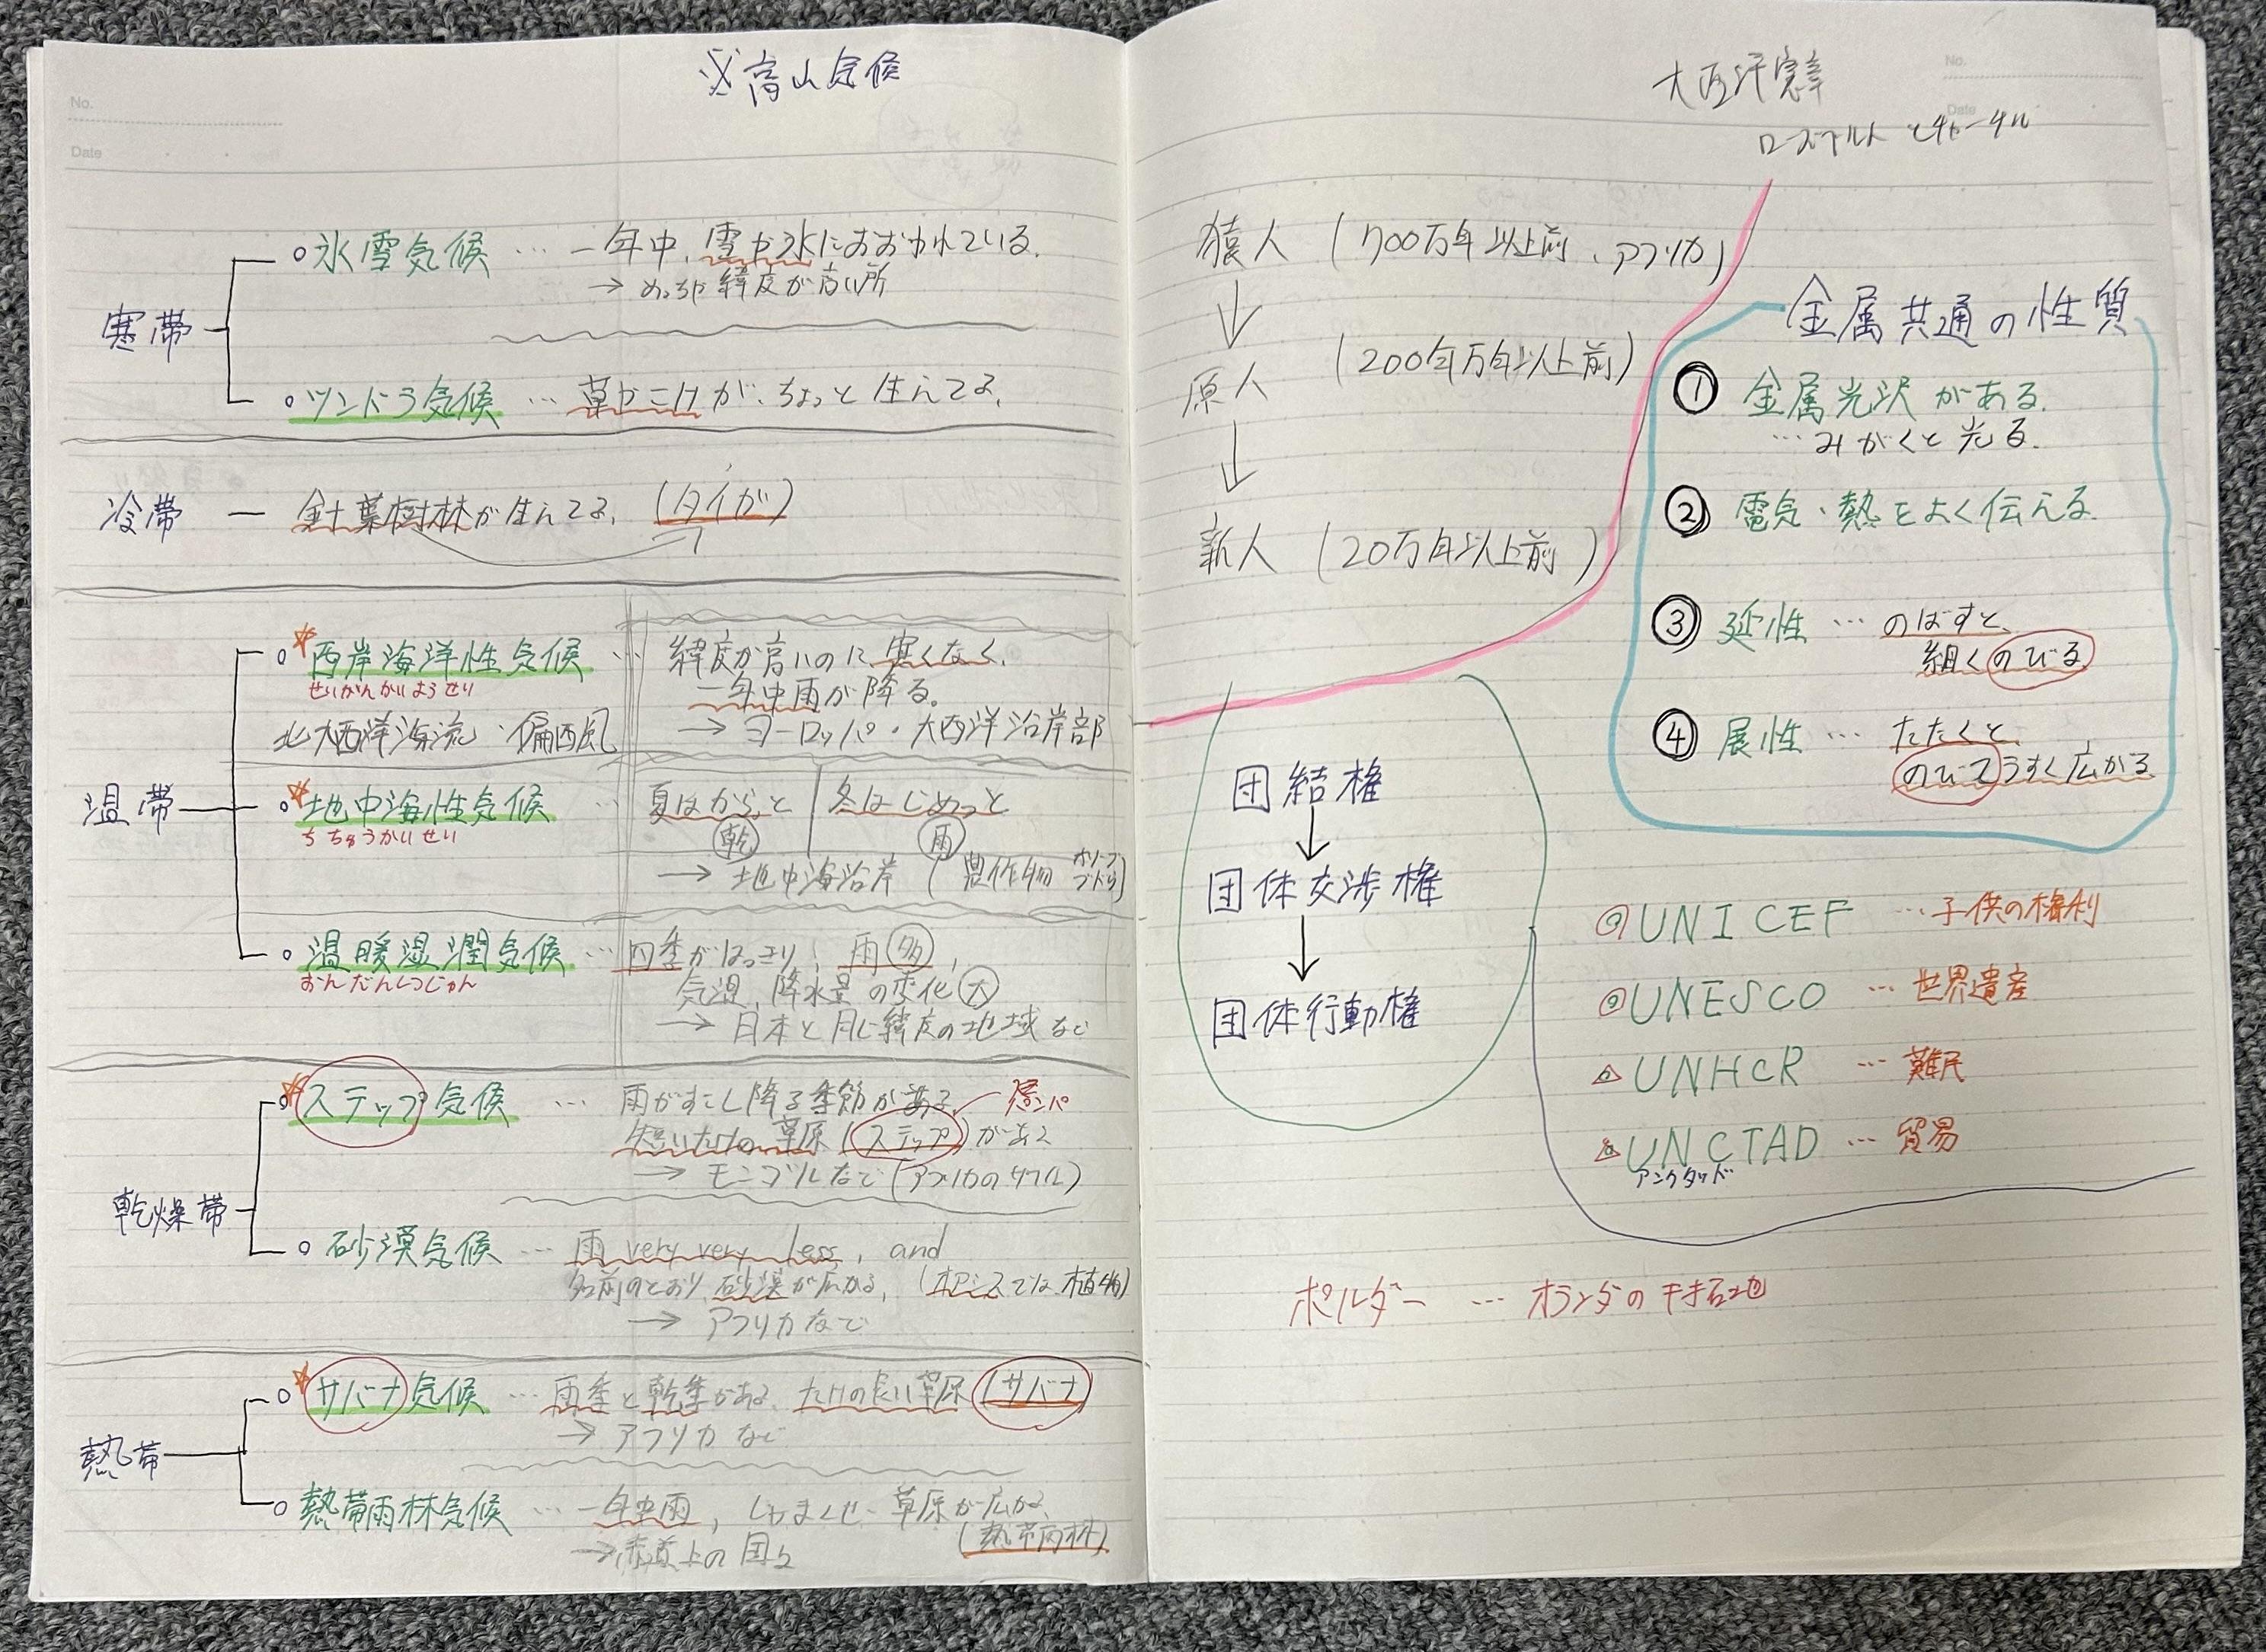 No.
Date
※高山気候
寒帯
氷雪気候 … 一年中、雪や氷におおわれている。
→ めっちゃ緯度が高い所
ツンドラ気候 … 草やこけが、ちょっと生えてる。
冷帯 ー 針葉樹林が生えてる。(タイガ)
温帯
西岸海洋性気候 … 緯度が高いのに寒くなく、
せいがんかいようせい
一年中雨が降る。
北大西洋海流・偏西風
→ ヨーロッパ・大西洋沿岸部
地中海性気候 … 夏はからっと 冬はじめっと
ちちゅうかいせい
乾 雨
→ 地中海沿岸 (農作物 オリーブ ブドウ)
温暖湿潤気候 … 四季がはっきり、雨多、
おんだんしつじゅん
気温、降水量の変化大
→ 日本と同じ緯度の地域など
乾燥帯
ステップ気候 … 雨がすこし降る季節がある。
短いたけの草原(ステップ)がある
→ モンゴルなど(アフリカのサヘル)
砂漠気候 … 雨 very very less, and
名前のとおり、砂漠が広がる。(オアシスでは、植物)
→ アフリカなど
熱帯
サバナ気候 … 雨季と乾季がある。たけの長い草原(サバナ)
→ アフリカなど
熱帯雨林気候 … 一年中雨、 草原が広がる
(熱帯雨林)
→赤道上の国々
No.
Date
大西洋憲章
ローズベルトとチャーチル
猿人 (700万年以上前、アフリカ)
↓
原人 (200年万年以上前)
↓
新人 (20万年以上前)
金属共通の性質
① 金属光沢がある。
… みがくと光る。
② 電気・熱をよく伝える。
③ 延性 … のばすと、
細くのびる
④ 展性 … たたくと、
のびてうすく広がる
団結権
↓
団体交渉権
↓
団体行動権
UNICEF … 子供の権利
UNESCO … 世界遺産
UNHCR … 難民
UNCTAD … 貿易
アンクタッド
ポルダー … オランダの干拓地